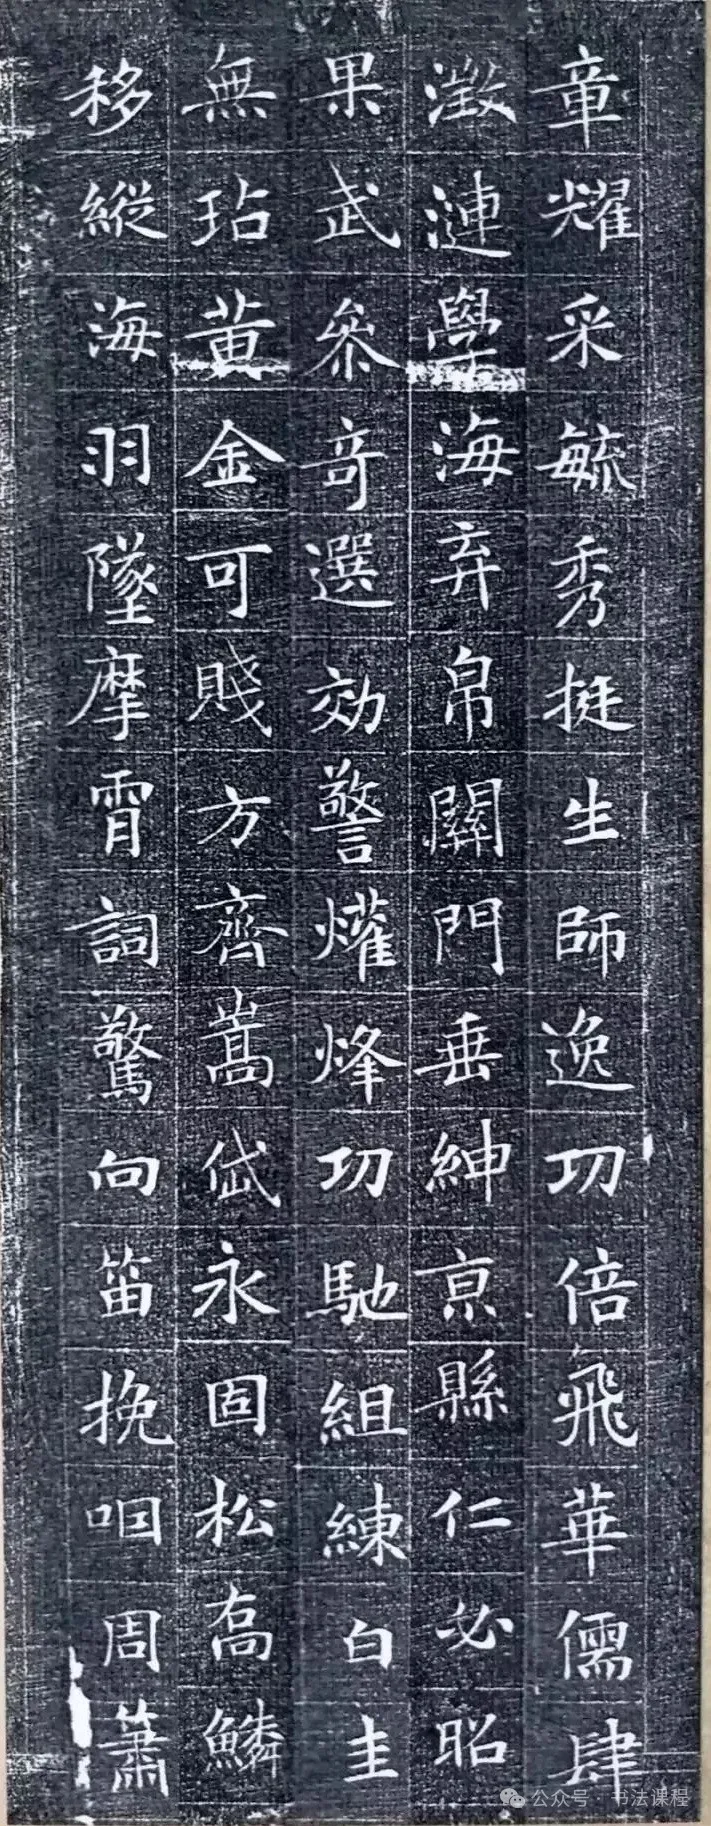 章耀采毓秀挺生師逸功倍飛華儒肆
澂漣學海弃帛關門垂紳京縣仁必昭
果武叅奇選効警爟烽功馳組練白圭
無玷黄金可賤方齊嵩岱永固松髙鱗
移縱海羽墜摩霄詞驚向笛挽咽周簫
公众号 · 书法课程